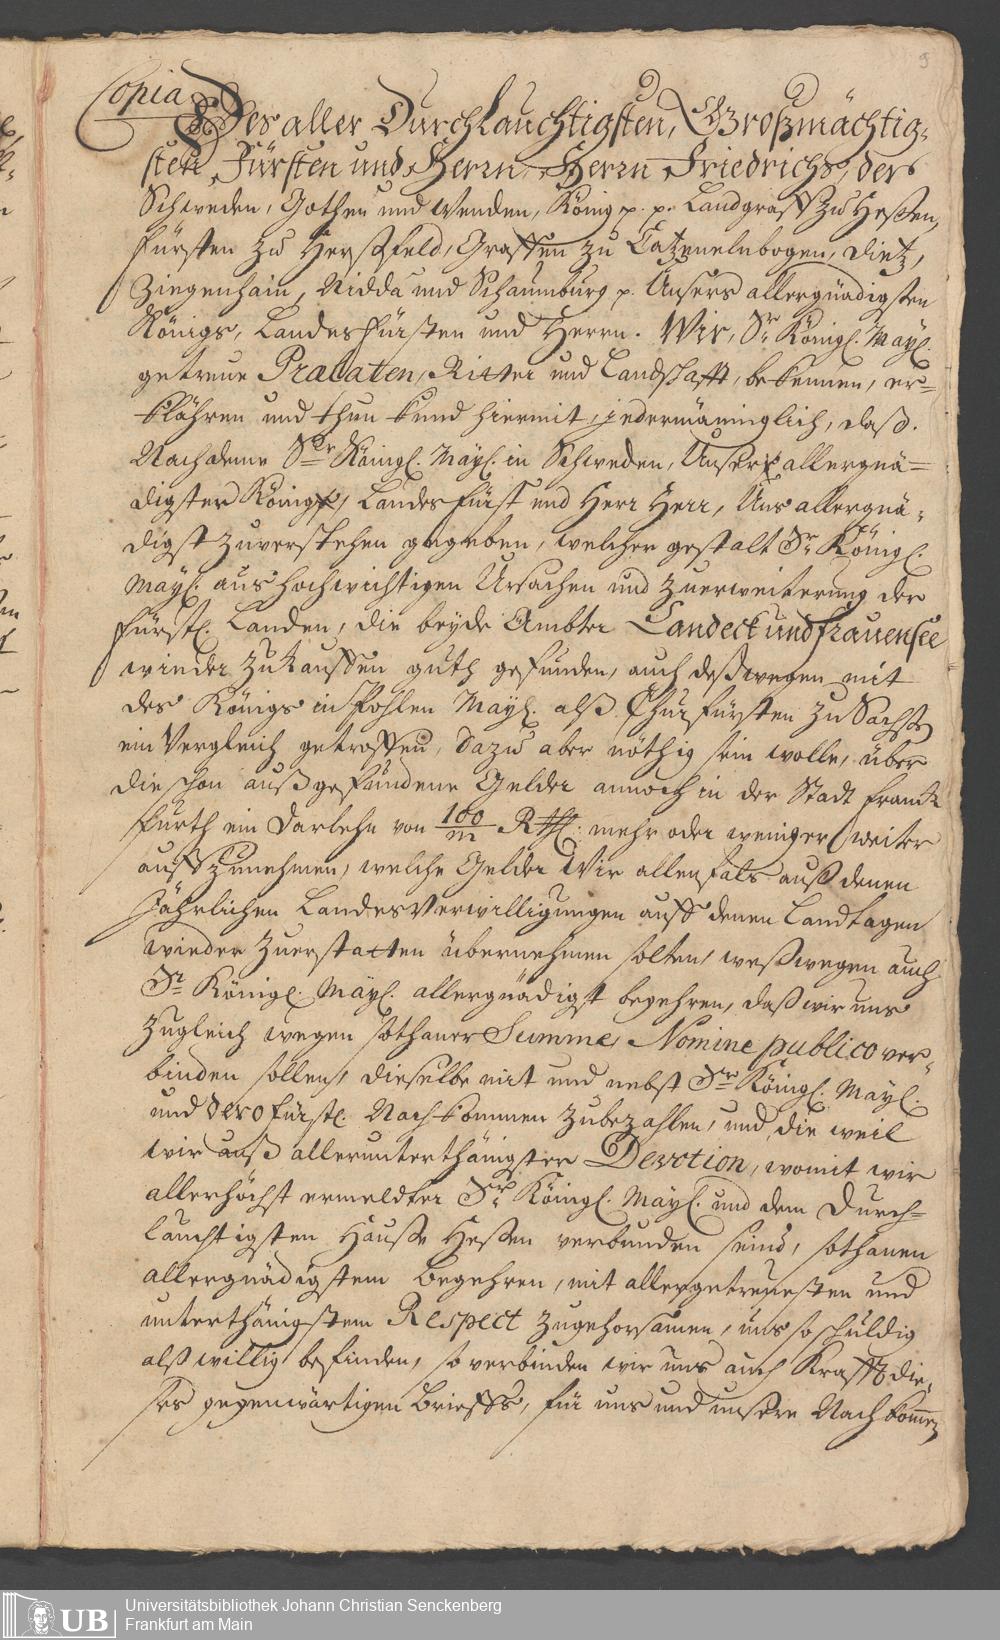 Copia
Des aller Durchlauchtigsten, Großmächtig-
sten Fürsten und Herrn, Herrn Friedrichs, der
Schweden, Gothen und Wenden, König p. p. Landgraff zu Heßen,
Fürsten zu Herßfeld, Graffen zu Catzenelnbogen, Dietz,
Ziegenhain, Nidda und Schaumburg p. Unsers allergnädigsten
Königs, Landesfürsten und Herrn. Wir, Sr. Königl. Mayl.
getreue Praelaten, Ritter und Landschafft, bekennen, er-
klähren und thun kund hiermit, jedermänniglich, daß.
Nachdeme Sr. Königl. Mayl. in Schweden, Unser allergnä-
digster König, Landesfürst und Herr Herr, Uns allergnä-
digst zuverstehen gegeben, welcher gestalt Sr. Königl.
Mayl. aus hochwichtigen Ursachen und zuerweiterung der
Fürstl. Landen, die beyde Ambter Landeck und Frauensee
wieder zukauffen guth gefunden, auch deßwegen mit
des Königs in Pohlen Mayl. alß Churfürsten zu Sachßen
ein Vergleich getroffen, dazu aber nöthig sein wolle, über
die schon außgefundene Gelder annoch in der Stadt Franck-
furth ein Darlehn von 100/m Rthl. mehr oder weniger weiter
auffzunehmen, welche Gelder Wir allenfals auß denen
Jährlichen LandesVerwilligungen auff denen Landtagen
wieder zuerstatten übernehmen solten, weßwegen auch
Sr. Königl. Mayl. allergnädigst begehren, daß wir uns
zugleich wegen sothaner Summe, Nomine publico ver-
binden sollen, dieselbe mit und nebst Sr. Königl. Mayl.
und dero fürstl. Nachkommen zubezahlen, und die weil
wir auß allerunterthänigster Devotion, womit wir
allerhöchst ermeldter Sr. Königl. Mayl. und dem Durch-
lauchtigsten Hauße Heßen verbunden seind, sothanen
allergnädigstem Begehren, mit allergetreuesten und
unterthänigstem Respect zugehorsamen, uns so schuldig
alß willig befinden, so verbinden wir uns auch Krafft die-
ses gegenwärtigen Brieffs, für uns und unsere Nachkommen
Universitätsbibliothek Johann Christian Senckenberg
Frankfurt am Main
UB